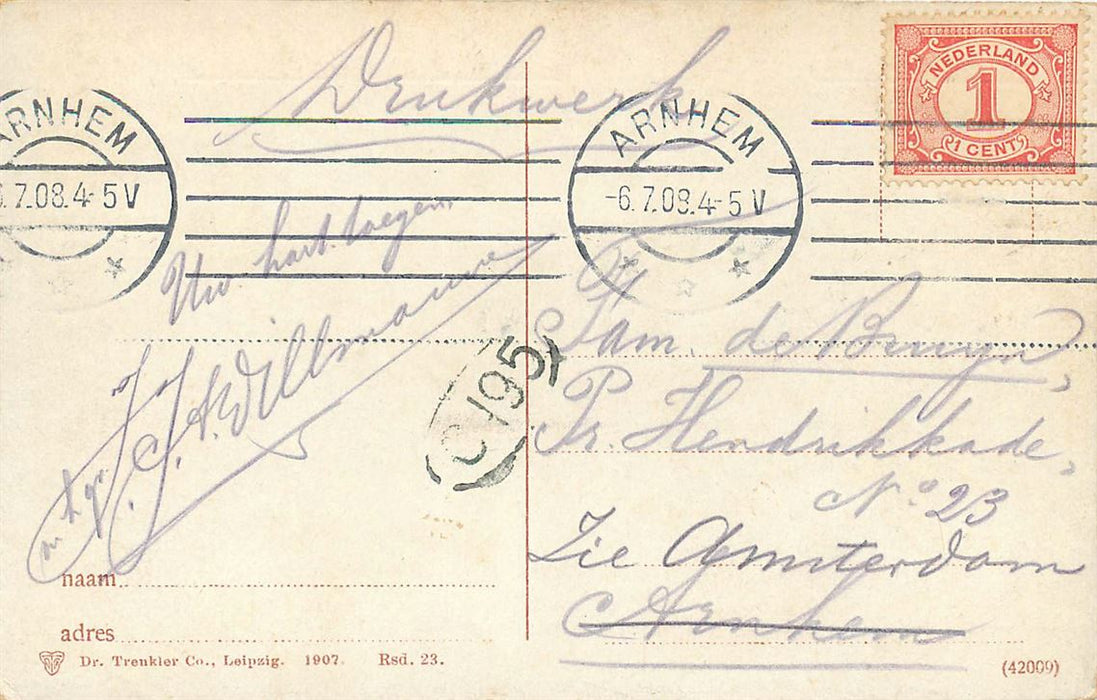 Drukwerk
NEDERLAND
1
1 CENT
ARNHEM
6.7.08.4-5 V
ARNHEM
-6.7.08.4-5 V
Uw. hart. toegen.
Fam. de Bruyn,
Pr. Hendrikkade,
No. 23
Zie Amsterdam
Arnhem
C195
naam
adres
Dr. Trenkler Co., Leipzig. 1907. Rsd. 23.
(42009)